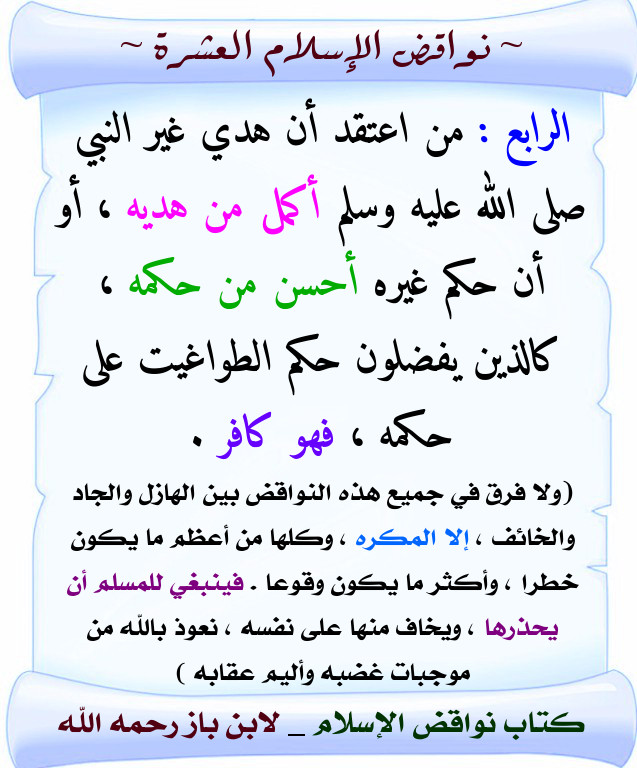 ~ نواقض الإسلام العشرة ~
الرابع : من اعتقد أن هدي غير النبي
صلى الله عليه وسلم أكمل من هديه ، أو
أن حكم غيره أحسن من حكمه ،
كالذين يفضلون حكم الطواغيت على
حكمه ، فهو كافر .
(ولا فرق في جميع هذه النواقض بين الهازل والجاد
والخائف ، إلا المكره ، وكلها من أعظم ما يكون
خطرا ، وأكثر ما يكون وقوعا . فينبغي للمسلم أن
يحذرها ، ويخاف منها على نفسه ، نعوذ بالله من
موجبات غضبه وأليم عقابه )
كتاب نواقض الإسلام _ لابن باز رحمه الله